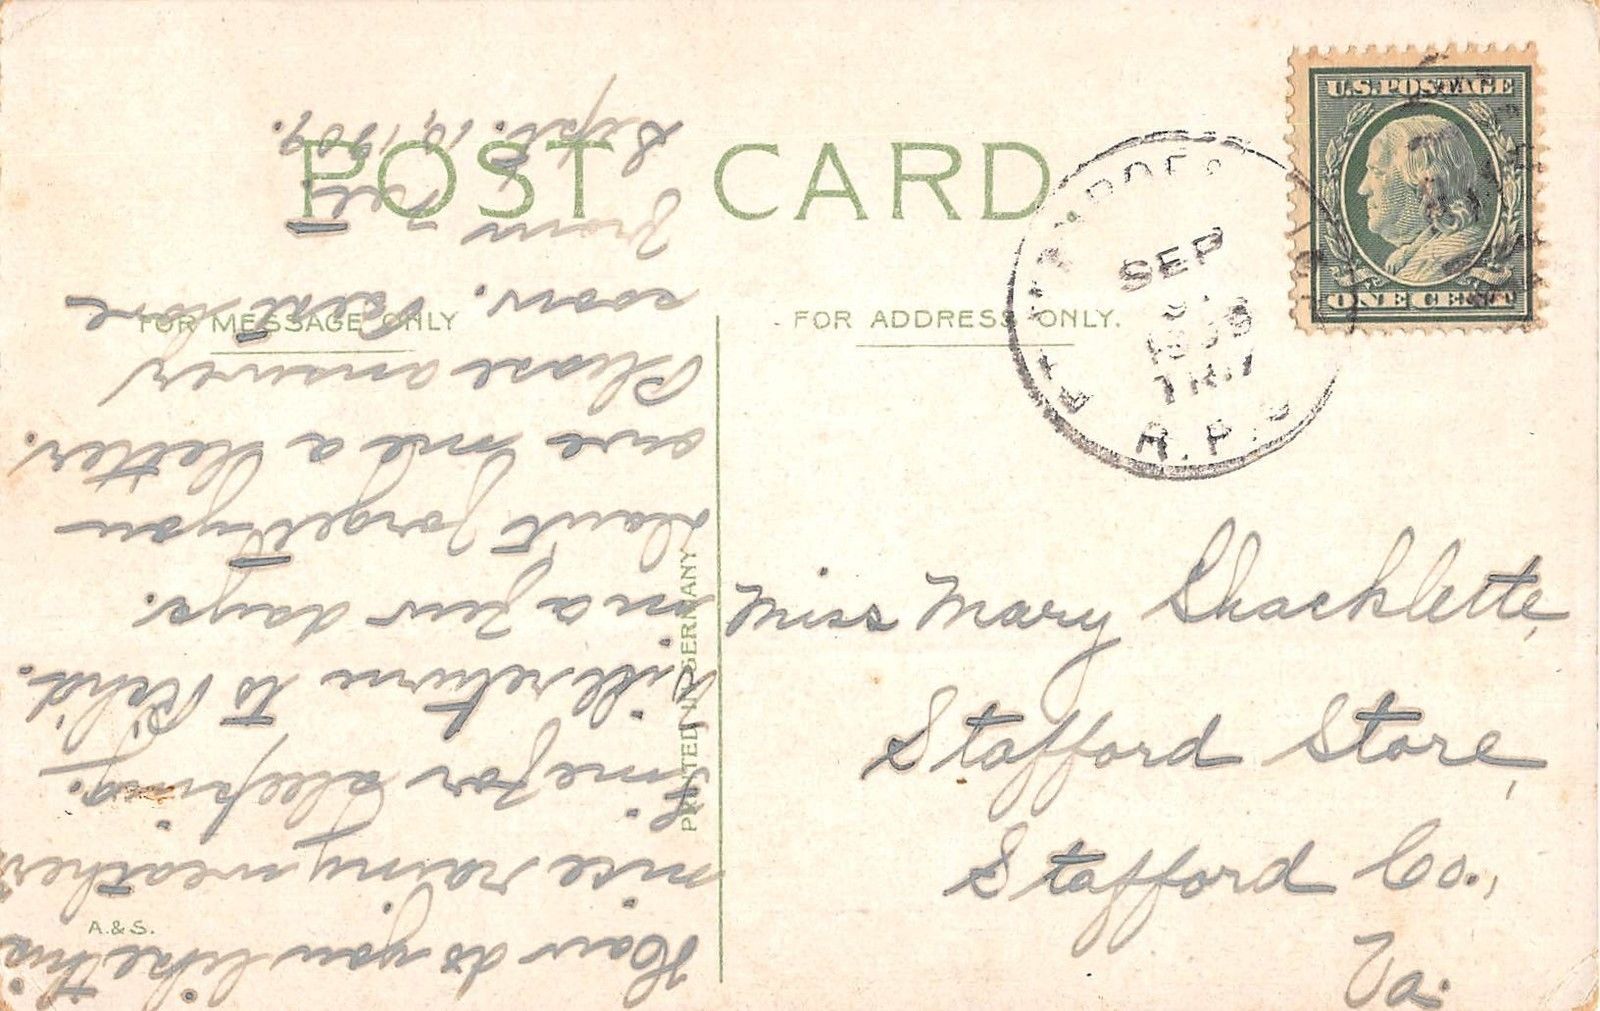 POST CARD
FOR MESSAGE ONLY
FOR ADDRESS ONLY.
U.S. POSTAGE
ONE CENT
SEP
1909
TR.
R.P.O.
Miss Mary Shacklette,
Stafford Store,
Stafford Co.,
Va.
How do you like this
nice rainy weather
fine for sleeping.
Will return to Rch'd.
in a few days.
Don't forget you
owe me a letter.
Please answer
soon.
From
Sept. 10, 1909.
PRINTED IN GERMANY
A. & S.